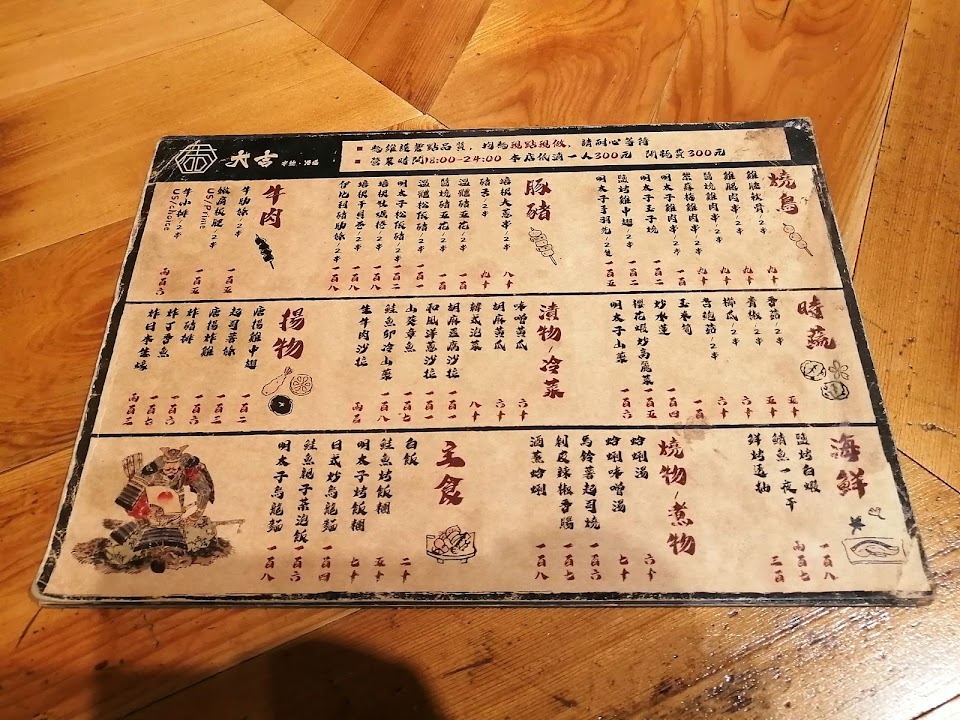 大吉 串燒・酒場
■ 為維護餐點品質,均為現點現做,請耐心等待
■ 營業時間18:00-24:00 本店低消一人300元 開瓶費300元
燒鳥
雞腿軟骨/2串 九十
雞腿肉串/2串 九十
鹽燒雞肉串/2串 九十
紫蘇梅雞肉串/2串 九十
明太子雞肉串/2串 一百
明太子玉子燒 一百二
鹽烤雞中翅/2串 一百二
明太子手羽先/2隻 一百五
豚豬
培根大蔥串/2串 八十
豬舌/2串 九十
鹽燒五花/2串 九十
溫體五花/2串 一百
溫體松阪豬/2串 一百一
明太子松阪豬/2串 一百二
培根牡蠣捲/2串 一百八
培根干貝捲/2串 一百八
伊比利豬肋條/2串 一百八
牛肉
牛肋條/2串 一百五
板腱/2串 US/Prime 一百五
牛小排/2串 US/choice 兩百六
時蔬
香菇/2串 五十
青椒/2串 五十
櫛瓜/2串 六十
杏鮑菇/2串 六十
玉米筍 一百
炒水蓮 一百四
櫻花蝦炒高麗菜 一百五
明太子山藥 一百六
漬物/冷菜
味噌黃瓜 六十
胡麻黃瓜 六十
韓式泡菜 八十
胡麻豆腐沙拉 一百一
和風洋蔥沙拉 一百一
山葵章魚 一百七
鮭魚卵冷山菜 一百八
生牛肉沙拉 兩百
揚物
唐揚雞中翅 一百二
起司薯條 一百二
唐揚炸雞 一百六
炸豬排 一百六
炸丁香魚 一百七
炸日本生蠔 兩百二
海鮮
鹽烤白蝦 一百八
鯖魚一夜干 兩百七
鮮烤透抽 二百
燒物/煮物
蛤蜊湯 六十
蛤蜊味噌湯 七十
馬鈴薯起司燒 一百六
剝皮辣椒香腸 一百七
酒蒸蛤蜊 一百八
主食
白飯 二十
鮭魚烤飯糰 五十
明太子烤飯糰 七十
日式炒烏龍麵 一百四
鮭魚親子茶泡飯 一百六
明太子烏龍麵 一百八